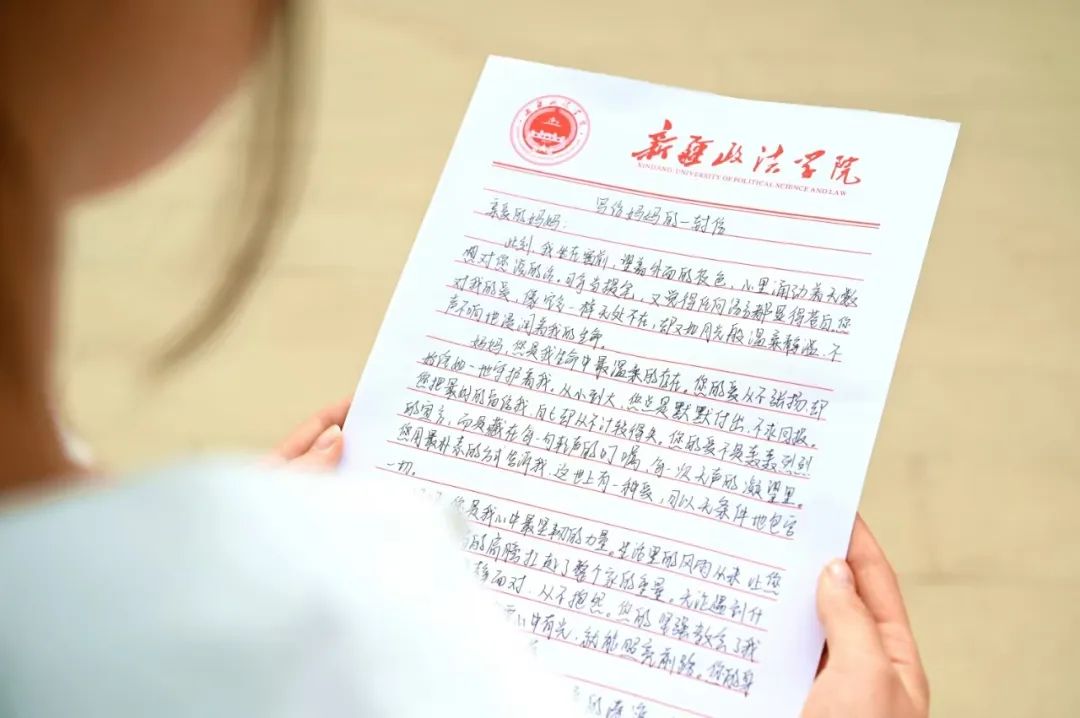 新疆政法学院
XINJIANG UNIVERSITY OF POLITICAL SCIENCE AND LAW
写给妈妈的一封信
亲爱的妈妈：
此刻，我坐在窗前，望着外面的夜色，心里涌动着无数
想对您说的话。可每当提笔，又觉得任何语言都显得苍白。您
对我的爱，像空气一样无处不在，却又如月光般温柔静谧，不
声不响地浸润着我的生命。
妈妈，您是我生命中最温柔的存在。您的爱从不张扬，却
始终如一地守护着我。从小到大，您总是默默付出，不求回报。
您把最好的留给我，自己却从不计较得失。您的爱不是轰轰烈烈
的宣言，而是藏在每一句轻声的叮嘱，每一次无声的凝望里。
您用最朴素的方式告诉我，这世上有一种爱，可以无条件地包容
一切。
您是我心中最坚韧的力量。生活里的风雨从未让您
的肩膀扛起了整个家的重量。无论遇到什
面对，从不抱怨。您的坚强教会了我
心中有光，就能照亮前路。您的身